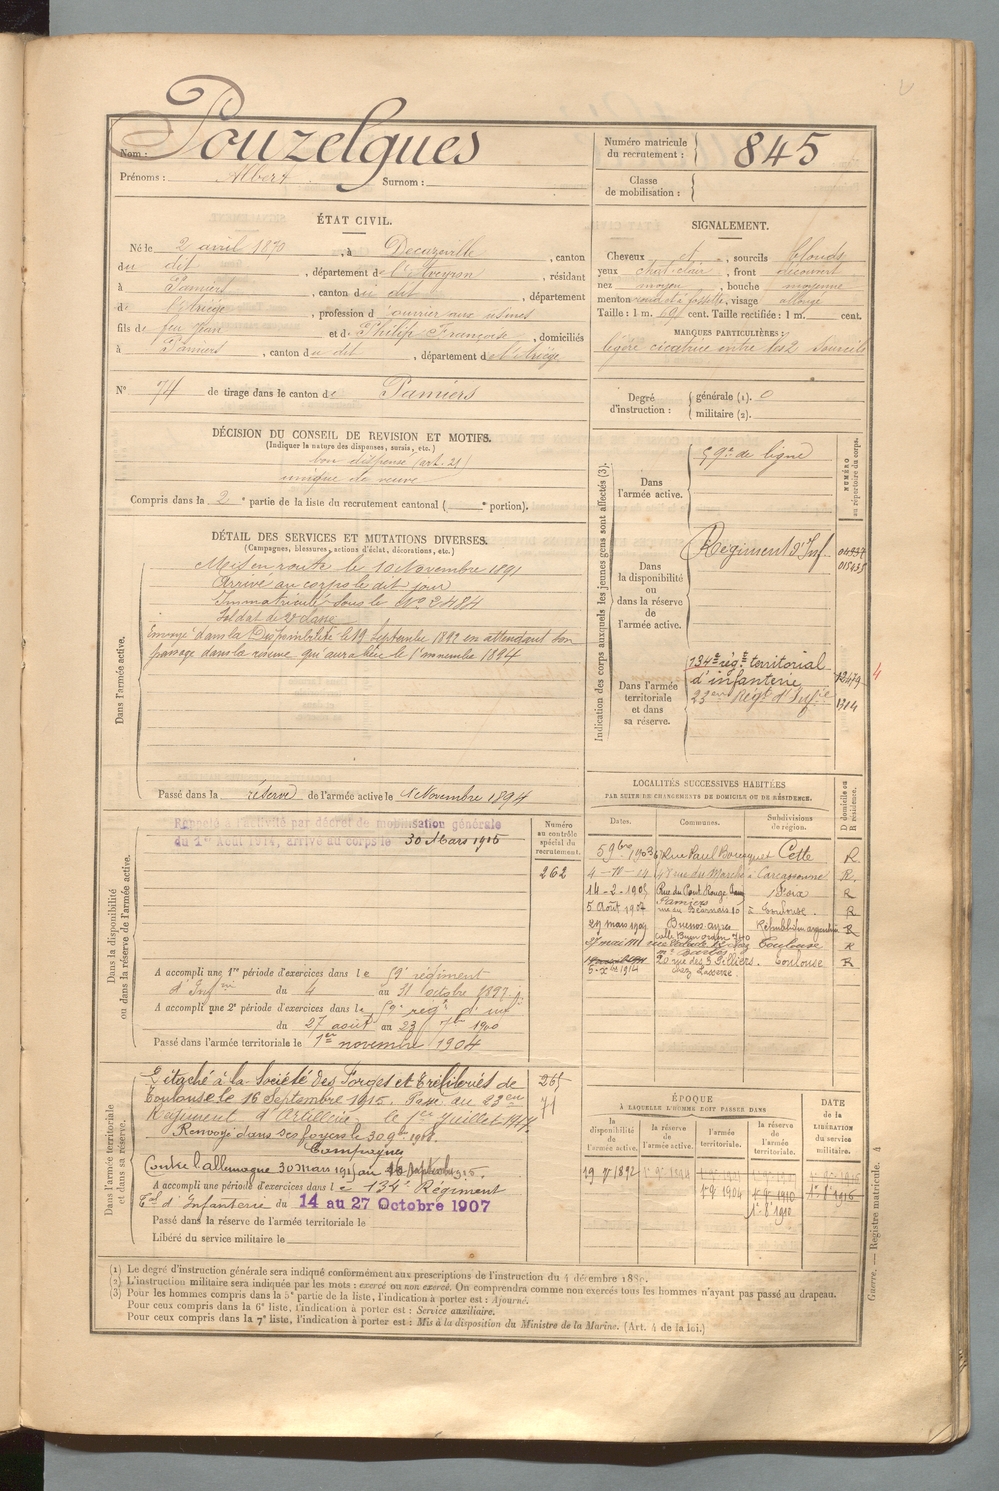 Nom : Pouzelgues
Prénoms : Albert Surnom :
Numéro matricule du recrutement : 845
Classe de mobilisation :
ÉTAT CIVIL.
Né le 2 avril 1870, à Decazeville, canton
du dit, département de l'Aveyron, résidant
à Pamiers, canton du dit, département
de l'Ariège, profession d'ouvrier aux usines
fils de feu Jean et de Philip Françoise, domiciliés
à Pamiers, canton du dit, département de l'Ariège
N° 74 de tirage dans le canton de Pamiers
SIGNALEMENT.
Cheveux et, sourcils blonds
yeux chat. clair, front découvert
nez moyen, bouche moyenne
menton rond et à fossette, visage allongé
Taille : 1 m. 691 cent. Taille rectifiée : 1 m. cent.
MARQUES PARTICULIÈRES :
légère cicatrice entre les 2 sourcils
Degré d'instruction : générale (1). 0
militaire (2).
DÉCISION DU CONSEIL DE REVISION ET MOTIFS.
(Indiquer la nature des dispenses, sursis, etc.)
bon dispensé (art. 21)
unique de veuve
Compris dans la 2e partie de la liste du recrutement cantonal ( e portion).
DÉTAIL DES SERVICES ET MUTATIONS DIVERSES.
(Campagnes, blessures, actions d'éclat, décorations, etc.)
Dans l'armée active.
Mis en route le 10 Novembre 1891
Arrivé au corps le dit jour
Immatriculé sous le No 3484
Soldat de 2e classe
Envoyé dans la Disponibilité le 19 Septembre 1892 en attendant son
passage dans la réserve qui aura lieu le 1er novembre 1894
Passé dans la réserve de l'armée active le 1er Novembre 1894
Indication des corps auxquels les jeunes gens sont affectés (3).
NUMÉRO au répertoire du corps.
Dans l'armée active.
59e de ligne
Dans la disponibilité ou dans la réserve de l'armée active.
Régiment d'Inf.
015435
Dans l'armée territoriale et dans sa réserve.
134e rég.t territorial
d'infanterie 12479 4
23ème Régt d'Infie 1314
LOCALITÉS SUCCESSIVES HABITÉES
PAR SUITE DE CHANGEMENTS DE DOMICILE OU DE RÉSIDENCE.
D domicile ou R résidence.
Dates. Communes. Subdivisions de région.
5 9bre 1903 Rue Paul Bousquet Cette R
4-11-04 48 rue du Marché à Carcassonne R.
14-2-1905 Rue du Pont Rouge Pamiers Foix R
5 Août 1907 rue du Béarnais 10 à Toulouse. R
29 mars 1909 Buenos-ayres Républ. argentine R
Toulouse R
5-Xbre 1914 20 rue des 3 Pilliers. chez Lacaze Toulouse R
Dans la disponibilité ou dans la réserve de l'armée active.
Rappelé à l'activité par décret de mobilisation générale
du 1er Août 1914, arrivé au corps le 30 Mars 1915
Numéro au contrôle spécial du recrutement.
262
A accompli une 1re période d'exercices dans le 59e régiment
d'Infrie du 4 au 31 octobre 1897
A accompli une 2e période d'exercices dans le 59e regt d'inf
du 27 août au 23 7bre 1900
Passé dans l'armée territoriale le 1er novembre 1904
Dans l'armée territoriale et dans sa réserve.
Détaché à la Société des Forges et Tréfileries de
Toulouse le 16 Septembre 1915. Passé au 23em
Régiment d'Artillerie le 1er Juillet 1917.
Renvoyé dans ses foyers le 30 9bre 1918.
Campagnes
Contre l'allemagne 30 mars 1915 au 15 Septembre 1915.
A accompli une période d'exercices dans le 134e Régiment
Tal d'Infanterie du 14 au 27 Octobre 1907
Passé dans la réserve de l'armée territoriale le
Libéré du service militaire le
265
71
ÉPOQUE
À LAQUELLE L'HOMME DOIT PASSER DANS
la disponibilité de l'armée active.
la réserve de l'armée active.
l'armée territoriale.
la réserve de l'armée territoriale.
DATE de la LIBÉRATION du service militaire.
19 7 1892
1er 9 1904
1er 9 1910
1er 8 1910
(1) Le degré d'instruction générale sera indiqué conformément aux prescriptions de l'instruction du 4 décembre 1889.
(2) L'instruction militaire sera indiquée par les mots : exercé ou non exercé. On comprendra comme non exercés tous les hommes n'ayant pas passé au drapeau.
(3) Pour les hommes compris dans la 5e partie de la liste, l'indication à porter est : Ajourné.
Pour ceux compris dans la 6e liste, l'indication à porter est : Service auxiliaire.
Pour ceux compris dans la 7e liste, l'indication à porter est : Mis à la disposition du Ministre de la Marine. (Art. 4 de la loi.)
Guerre. — Registre matricule. 4